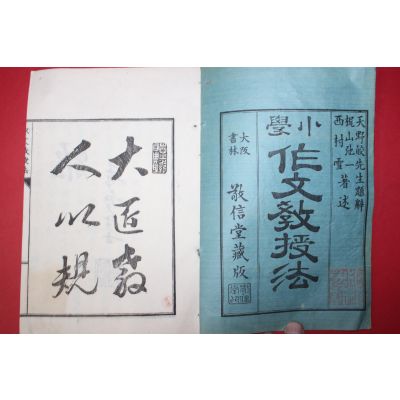 天野皎先生題辭
梶山弛一
西村雪 著述
小學
作文教授法
大阪
書林
敬信堂藏版
大匠教
人以規